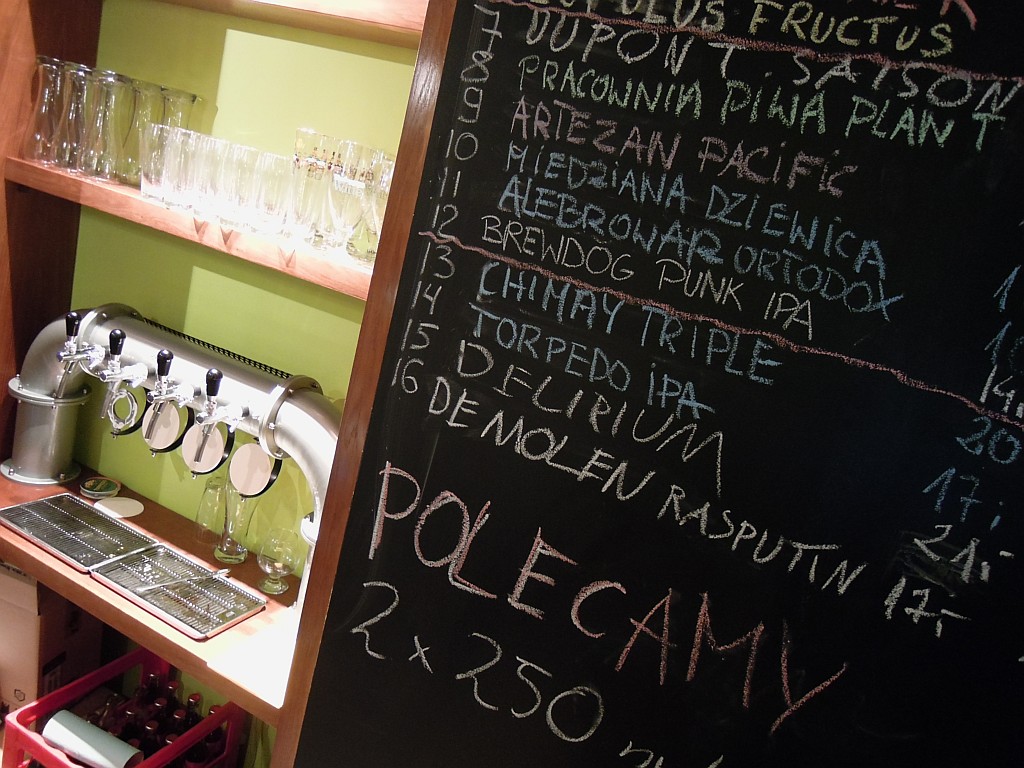 LUPULUS FRUCTUS
7 DUPONT SAISON
8 PRACOWNIA PIWA PLANT
9 ARTEZAN PACIFIC
10 MIEDZIANA DZIEWICA
11 ALEBROWAR ORTODOX
12 BREWDOG PUNK IPA 14,
13 CHIMAY TRIPLE 20
14 TORPEDO IPA 17,
15 DELIRIUM 21,-
16 DE MOLEN RASPUTIN 17,-
POLECAMY
2 x 250